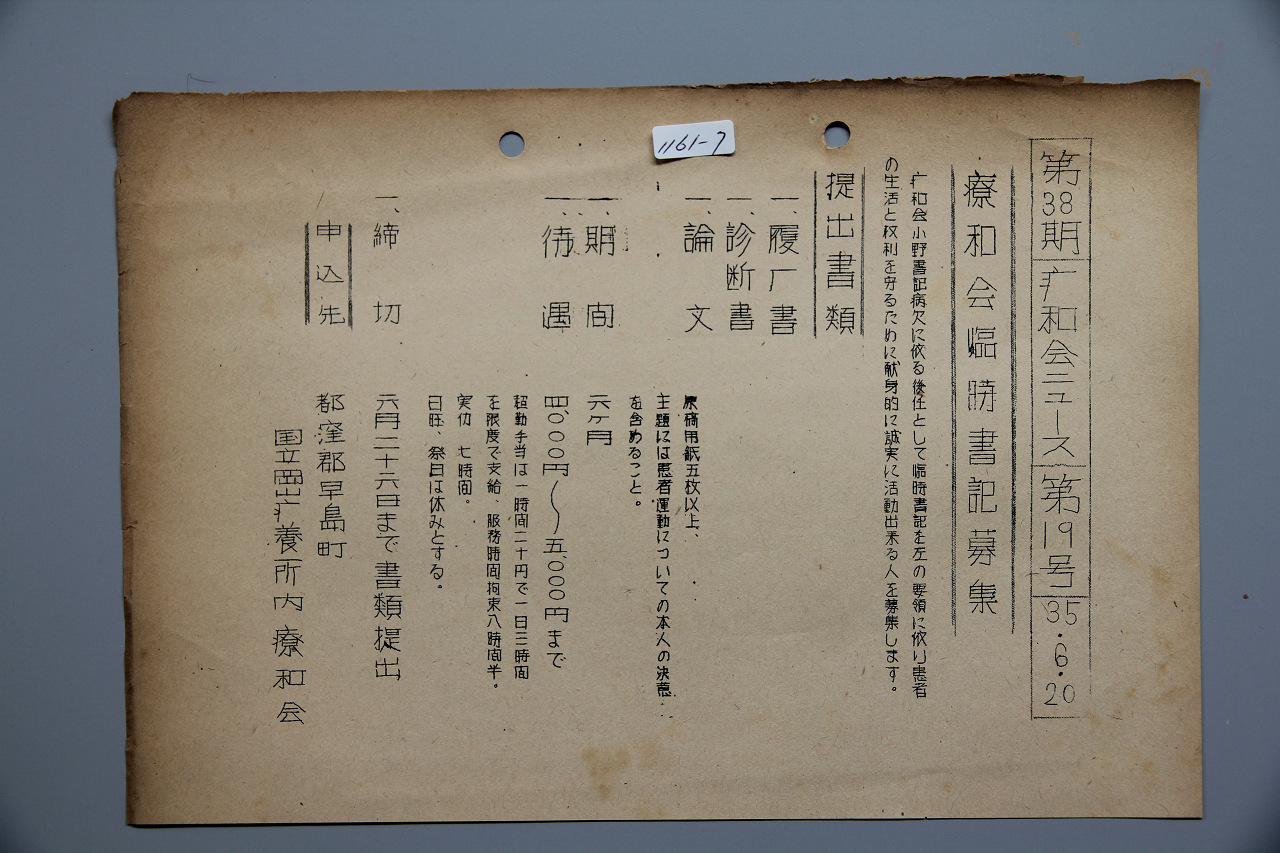 1161-7
第38期 疒和会ニュース 第19号 35.6.20
療和会臨時書記募集
疒和会小野書記病欠に依る後任として臨時書記を左の要領に依り患者
の生活と权利を守るために献身的に誠実に活動出来る人を募集します。
提出書類
一、履厂書
一、診断書
一、論文 原稿用紙五枚以上、
主題には患者運動についての本人の決意
を含めること。
一、期間 六ヶ月
一、待遇 四、000円〜五、000円まで
超勤手当は一時間二十円で一日三時間
を限度で支給、服務時間拘束八時間半。
実仂 七時間。
日旺、祭日は休みとする。
一、締切 六月二十六日まで書類提出
申込先 都窪郡早島町
国立岡山疒養所内療和会